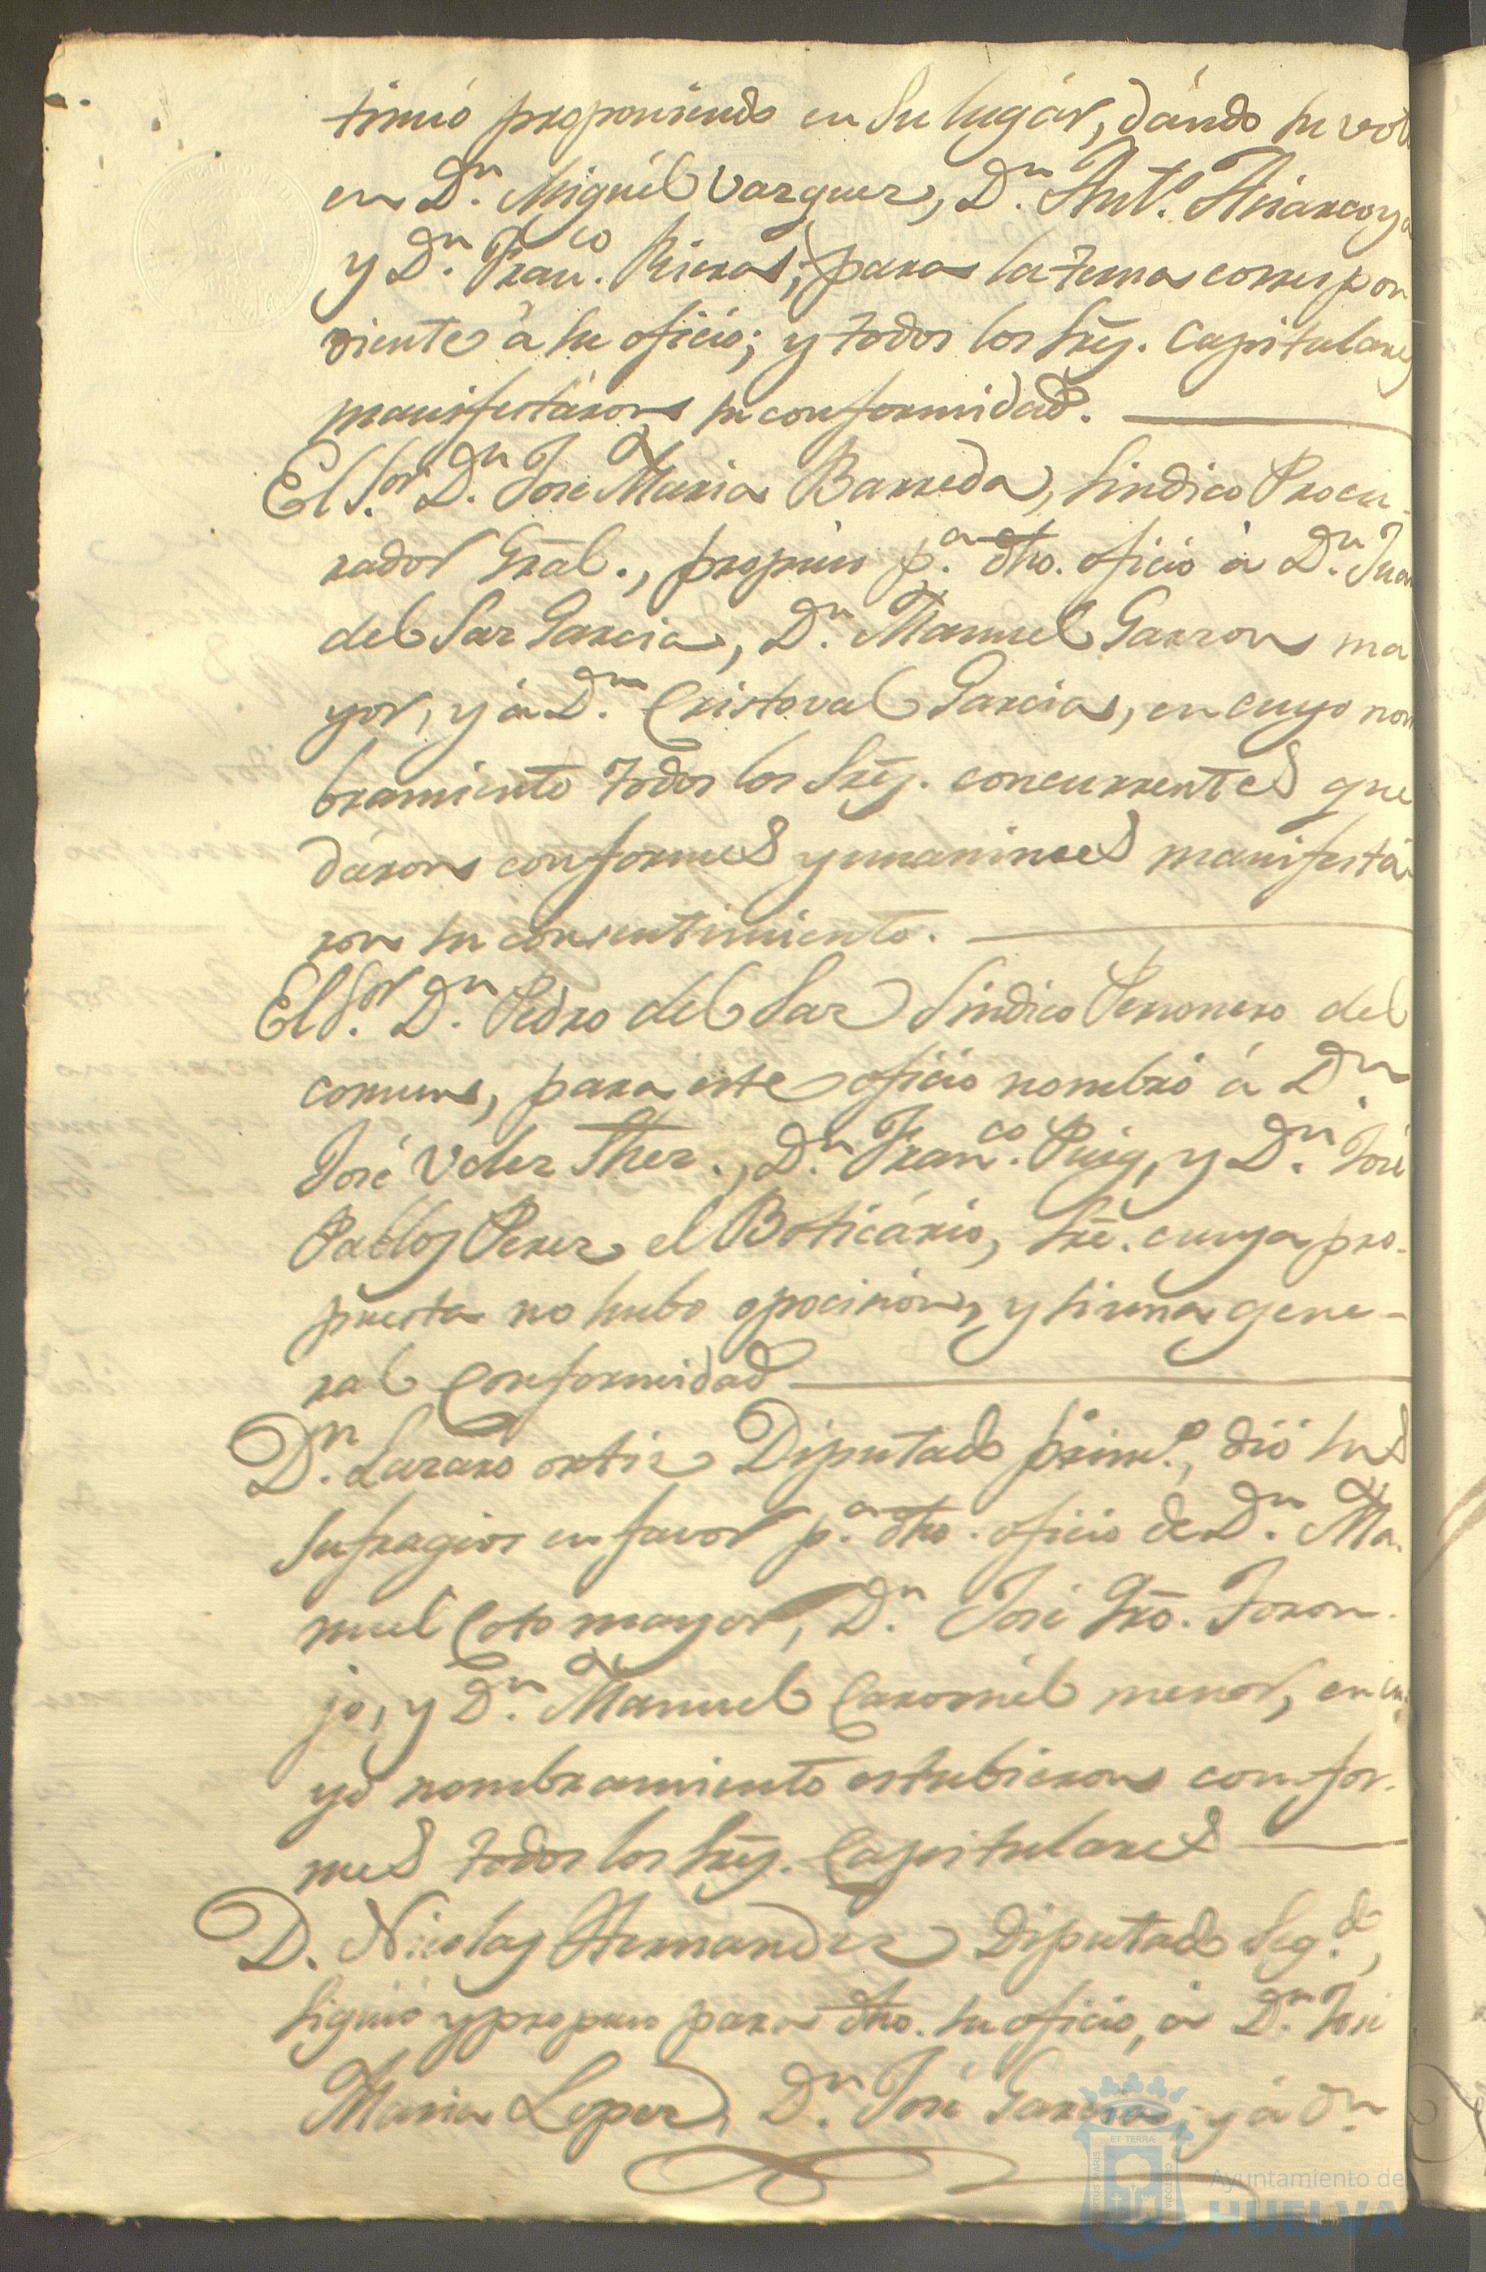 tinuó proponiendo en su lugár, dándo su voto
en Dn. Miguél Vazquez, Dn. Antº.
y Dn. Franco. Rieras; para la terna correspon
diente á su oficio; y todos los Srēs. Capitulares
manifestáron su conformidad.
El Sor. Dn. José Maria Barreda, Sindico Procu-
rador Grāl., propuso pa. dho. oficio á Dn. Juan
del Saz Garcia, Dn. Manuel Garzon ma
yor, y á Dn. Cristoval Garcia, en cuyo nom
bramiento todos los Srēs. concurrentes que
dáron conformes y unanimes manifestá
ron su consentimiento.
El Sor. Dn. Pedro del Saz Sindico Personero del
comun, para este oficio nombró á Dn.
José Velez Shez., Dn. Franco. Puig, y Dn. José
Pablos Perez el Boticário, srē. cuya pro-
puesta no hubo opocision, y si una gene-
ral conformidad
Dn. Lazaro ortiz Diputado prim.º, dió sus
sufragios en favor pa. dho. oficio de Dn. Ma-
nuel Coto mayor, Dn. José Gro. Toron-
jo, y Dn. Manuel Caromél menor, en cu-
yo nombramiento estubieron confor-
mes todos los Srēs. Capitulares
D. Nicolas Hernandez Diputado Seg.do,
siguió y propuso para dho. su oficio, á Dn. José
Maria Lopez, Dn. José Garcia, y á Dn.
ET TERRÆ
Ayuntamiento de
HUELVA